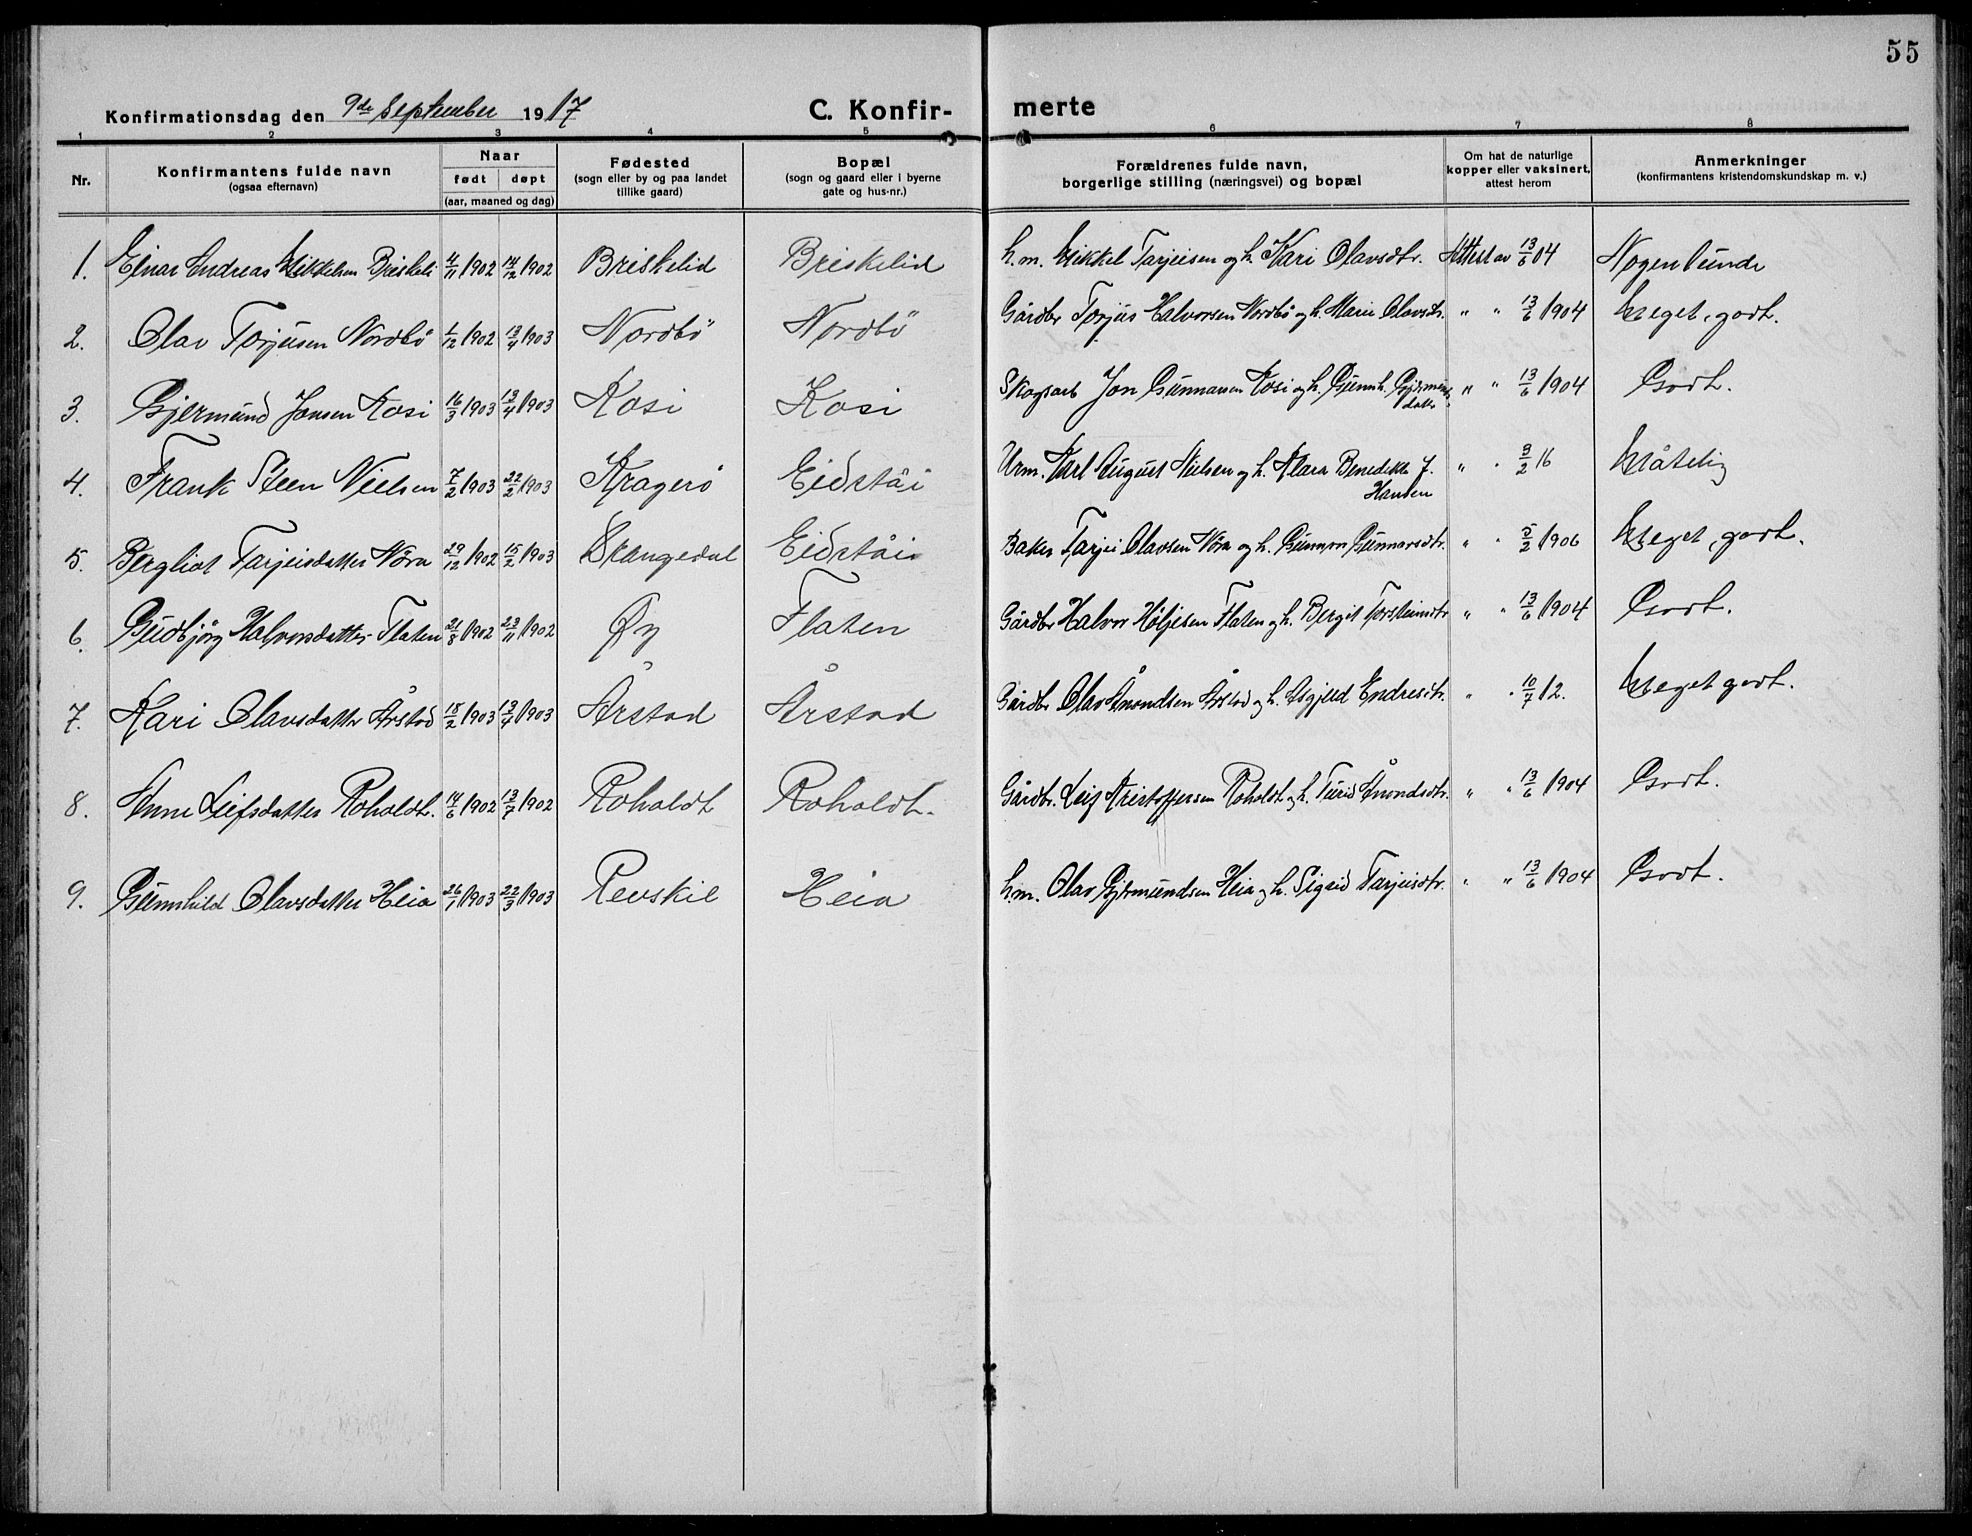 55
Konfirmationsdag den 9de September 1917 C. Konfirmerte
1 2 3 4 5 6 7 8
Nr. Konfirmantens fulde navn (ogsaa efternavn) Naar født døpt (aar, maaned og dag) Fødested (sogn eller by og paa landet tillike gaard) Bopæl (sogn og gaard eller i byerne gate og hus-nr.) Forældrenes fulde navn, borgerlige stilling (næringsvei) og bopæl Om hat de naturlige kopper eller vaksinert, attest herom Anmerkninger (konfirmantens kristendomskundskap m. v.)
1. Einar Andreas Mikkelsen Briskeli 4/11 1902 14/12 1902 Briskelid Briskelid h.m. Mikkel Tarjeisen og h. Kari Olavsdtr. Attest av 13/6 04 Nogenlunde
2. Olav Torjusen Nordbö 1/12 1902 13/4 1903 Nordbö Nordbö Gårdbr Torjus Halvorsen Nordbö og h. Marie Olavsdtr. " " 13/6 1904 Meget godt.
3. Gjermund Jonsen Kosi 16/3 1903 13/4 1903 Kosi Kosi Skogsarb Jon Gunnarsen Kosi og h. Gunnh. Gjermundsdatter " " 13/6 1904 Godt.
4. Frank Steen Nielsen 7/2 1903 22/2 1903 Kragerö Eidståi Urm. Karl August Nielsen og h. Klara Benedikte J. Hansen " " 3/2 16 Måtelig
5. Bergliot Tarjeisdatter Nöra 29/12 1902 15/2 1903 Drangedal Eidståi Baker Tarjei Olavsen Nöra og h. Gunvor Gunnarsdtr. " " 5/2 1906 Meget godt.
6. Gudbjörg Halvorsdatter Flaten 21/8 1902 23/11 1902 Øy Flaten Gårdbr Halvor Höljesen Flaten og h. Bergit Torsteinsdtr " " 13/6 1904 Godt.
7. Kari Olavsdatter Årstad 18/2 1903 13/4 1903 Årstad Årstad Gårdbr Olav Ånondsen Årstad og h. Asgjerd Endresdtr. " " 10/7 12. Meget godt.
8. Anne Leifsdatter Roholdt. 14/6 1902 13/7 1902 Roholdt Roholdt. Gårdbr. Leif Kristoffersen Roholdt og h. Turid Ånondsdtr. " " 13/6 1904 Godt.
9. Gunnhild Olavsdatter Heia 26/1 1903 22/3 1903 Revskil Heia h.m. Olav Gjermundsen Heia og h. Sigrid Tarjeisdtr. " " 13/6 1904 Godt.